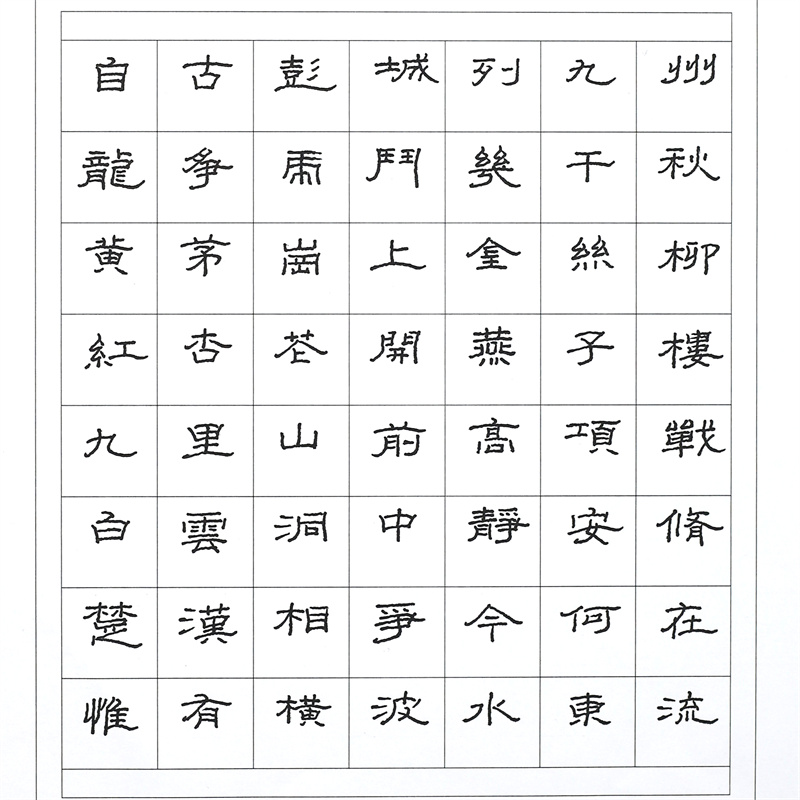 自古彭城列九州
龍爭虎鬥幾千秋
黃茅崗上金絲柳
紅杏花開燕子樓
九里山前高項戰
白雲洞中靜安脩
楚漢相爭今何在
惟有橫波水東流